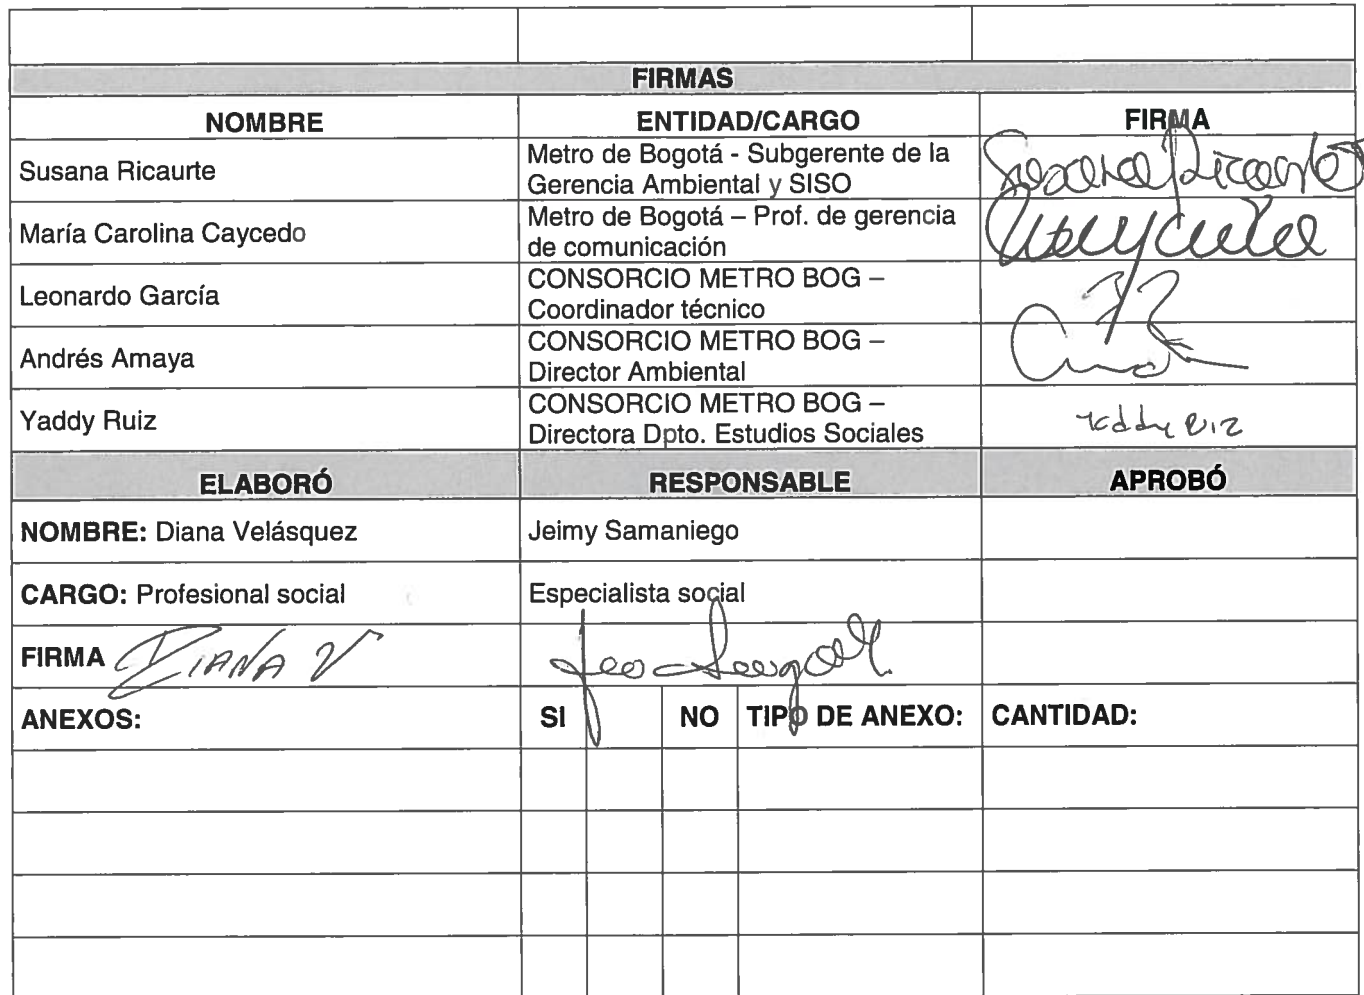 FIRMAS
NOMBRE ENTIDAD/CARGO FIRMA
Susana Ricaurte Metro de Bogotá - Subgerente de la Gerencia Ambiental y SISO Susana Ricaurte
María Carolina Caycedo Metro de Bogotá – Prof. de gerencia de comunicación
Leonardo García CONSORCIO METRO BOG – Coordinador técnico
Andrés Amaya CONSORCIO METRO BOG – Director Ambiental
Yaddy Ruiz CONSORCIO METRO BOG – Directora Dpto. Estudios Sociales Yaddy Ruiz
ELABORÓ RESPONSABLE APROBÓ
NOMBRE: Diana Velásquez Jeimy Samaniego
CARGO: Profesional social Especialista social
FIRMA DIANA V
ANEXOS: SI NO TIPO DE ANEXO: CANTIDAD: